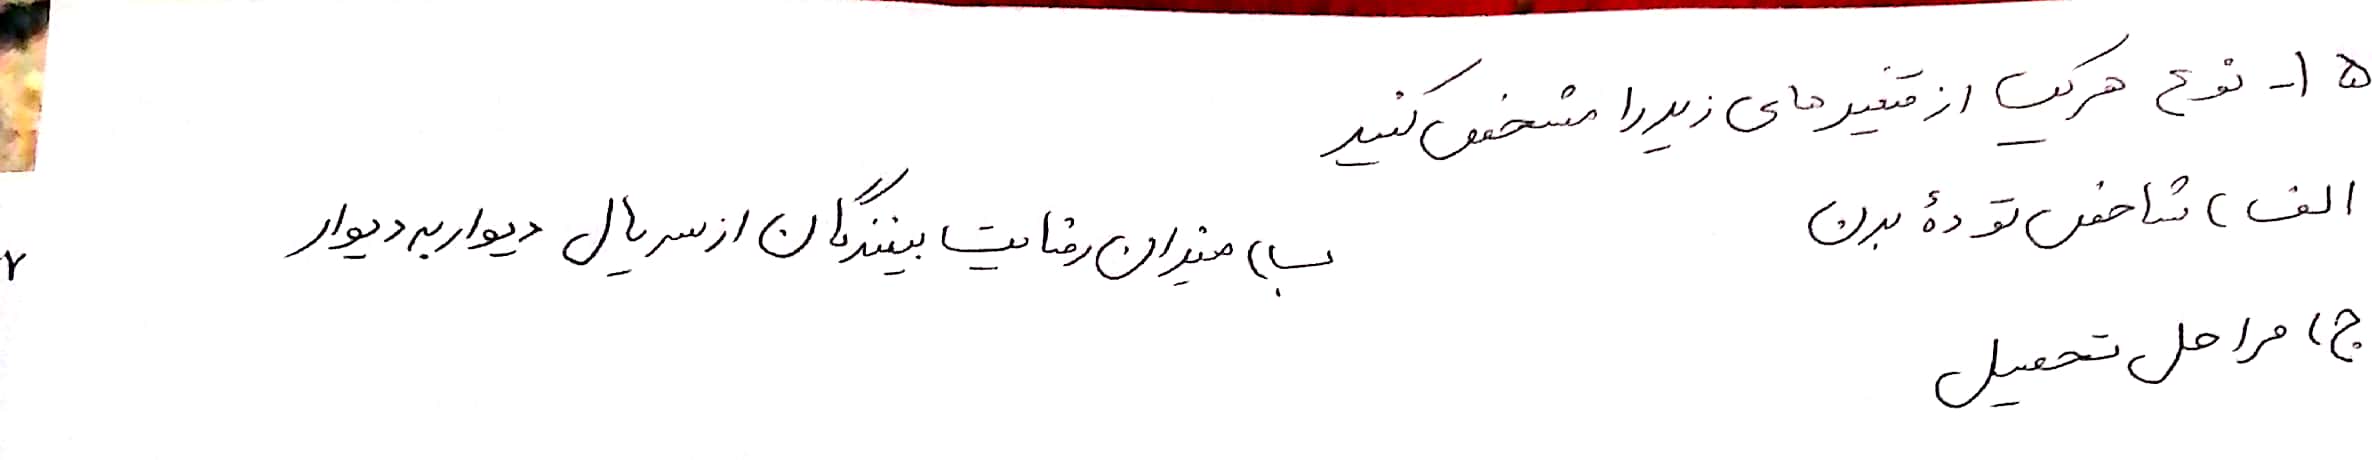 ۱۵- نوع هریک از متغیرهای زیر را مشخص کنید
الف) شاخص تودهٔ بدن ب) میزان رضایت بینندگان از سریال دیوار به دیوار
۲
ج) مراحل تحصیل